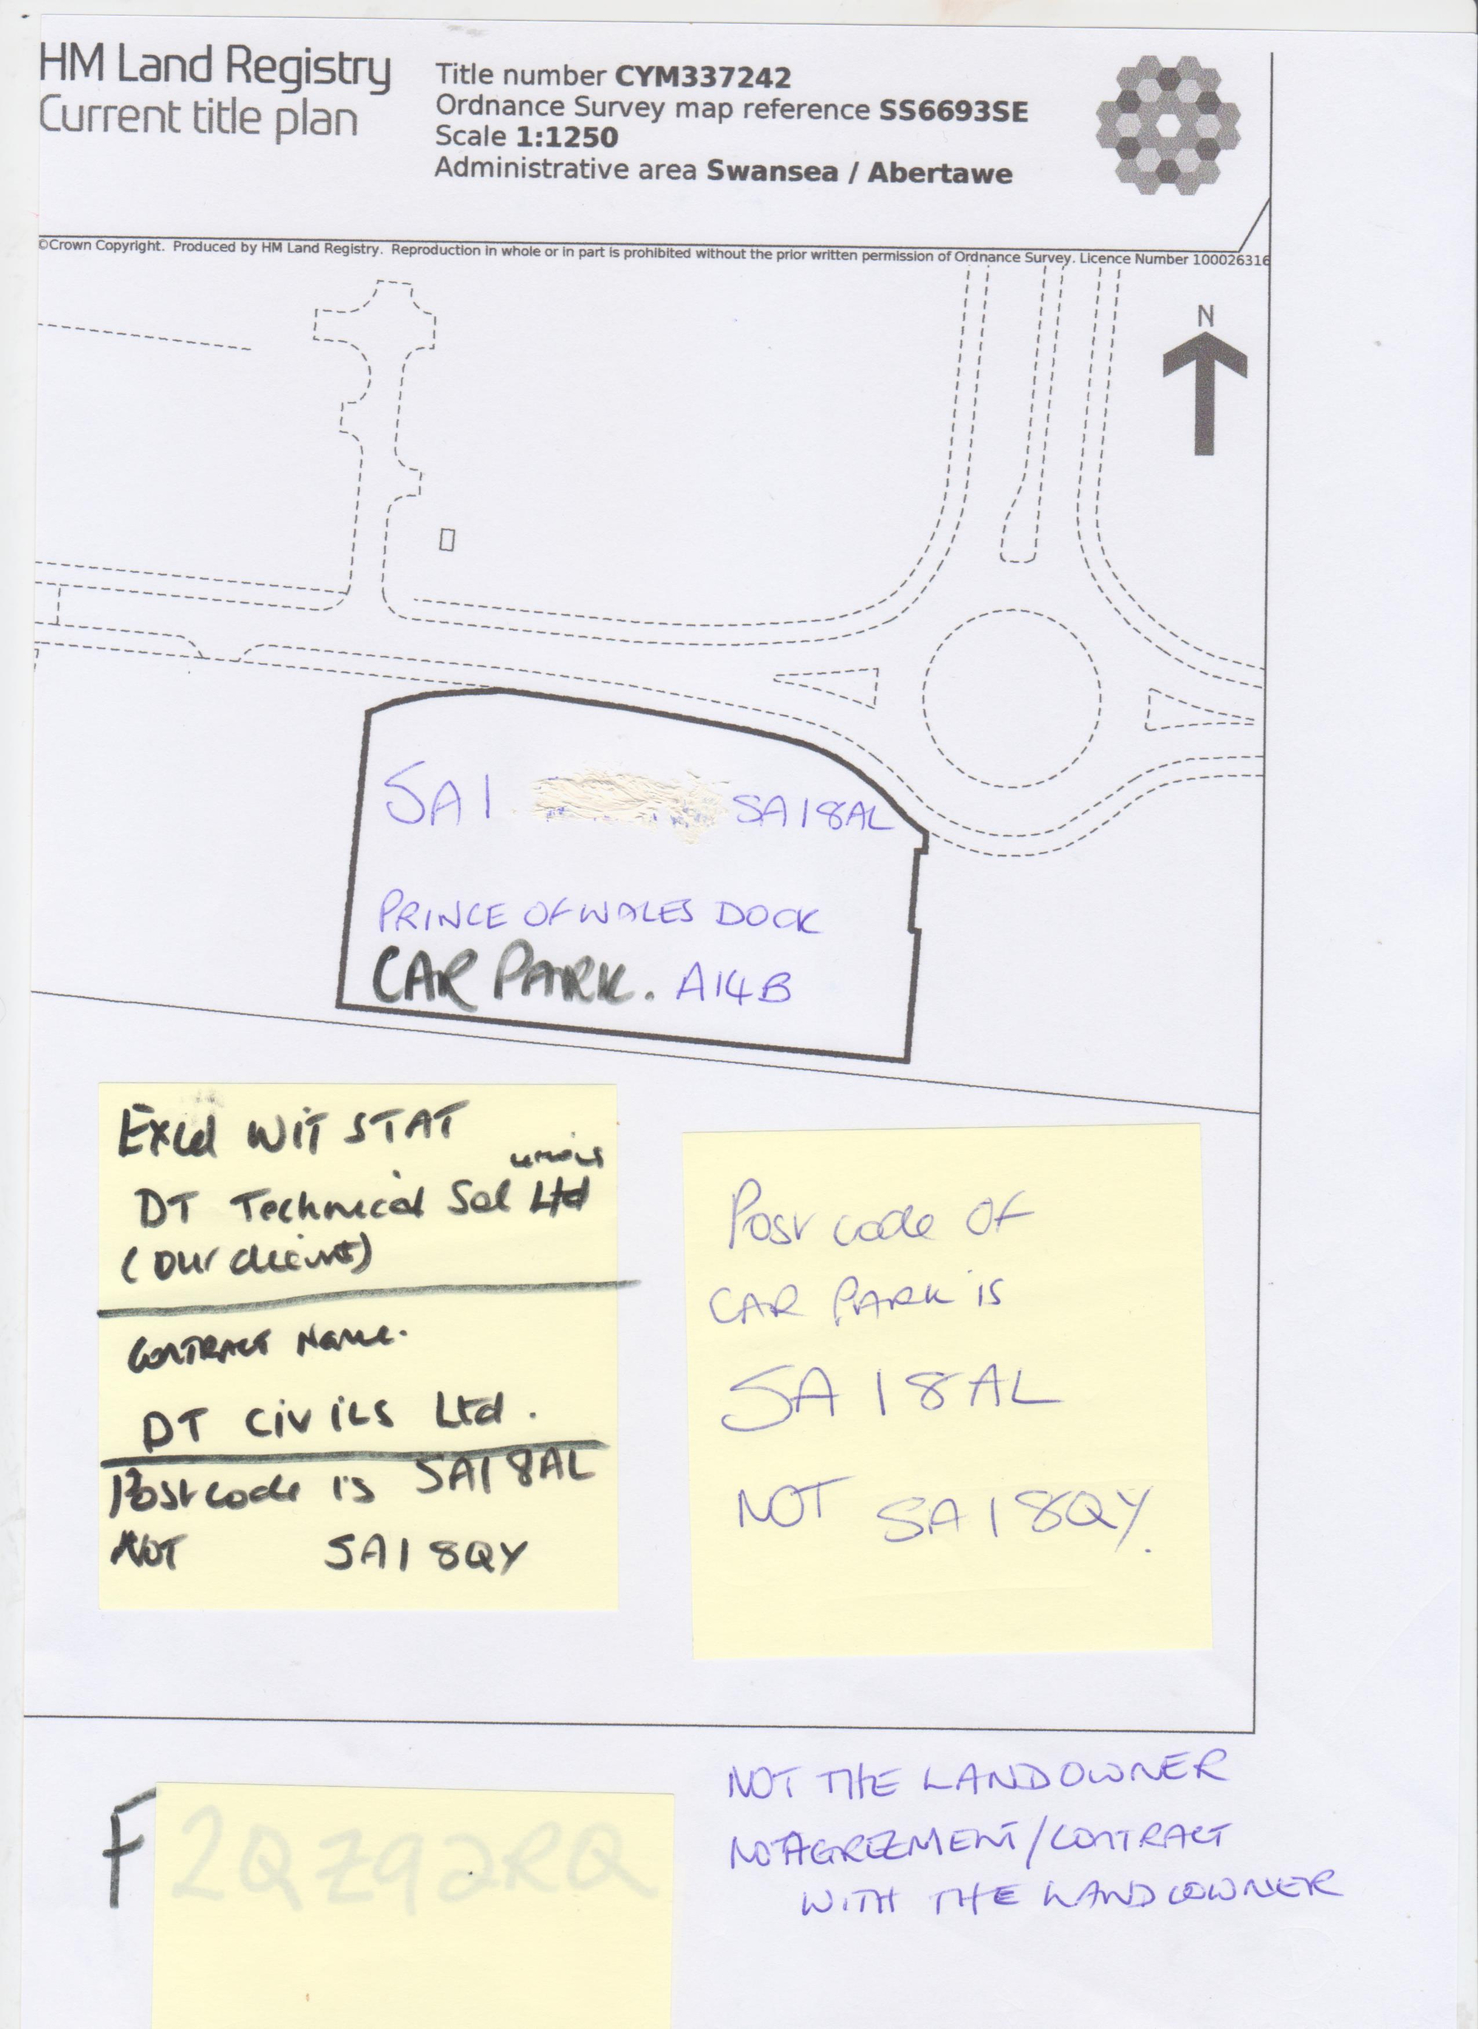 HM Land Registry
Current title plan
Title number CYM337242
Ordnance Survey map reference SS6693SE
Scale 1:1250
Administrative area Swansea / Abertawe
©Crown Copyright. Produced by HM Land Registry. Reproduction in whole or in part is prohibited without the prior written permission of Ordnance Survey. Licence Number 100026316
N
SA1 SA18AL
PRINCE OF WALES DOCK
CAR PARK. A14B
Excel WIT STAT
DT Technical Sol Ltd
(our client)
CONTRACT NAME.
DT CIVILS Ltd.
Post code is SA1 8AL
NOT SA1 8QY
Post code OF
CAR PARK is
SA1 8AL
NOT SA1 8QY.
NOT THE LANDOWNER
NOT AGREEMENT/CONTRACT
WITH THE LANDOWNER
F2QZ92RQ